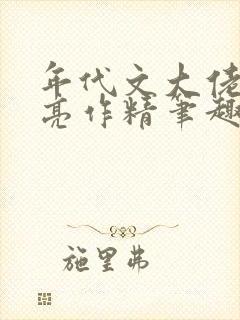 年代文大佬
亮作精筆趣
施里弗